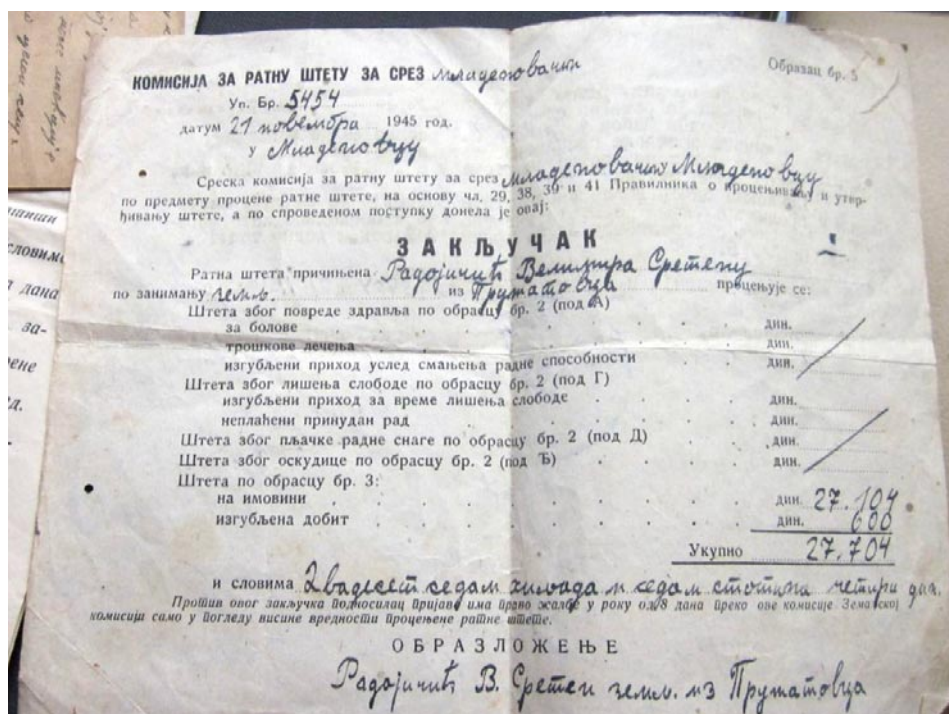 КОМИСИЈА ЗА РАТНУ ШТЕТУ ЗА СРЕЗ младеновачки
Образац бр. 5
Уп. Бр. 5454
датум 21 новембра 1945 год.
у Младеновцу
Среска комисија за ратну штету за срез младеновачки Младеновцу
по предмету процене ратне штете, на основу чл. 29, 38, 39 и 41 Правилника о процењивању и утвр-
ђивању штете, а по спроведеном поступку донела је овај:
ЗАКЉУЧАК
Ратна штета причињена Радојичић Велимира Сретену
по занимању земљ. из Пружатовца процењује се:
Штета због повреде здравља по обрасцу бр. 2 (под А)
за болове . . . . дин.
трошкове лечења . . . . дин.
изгубљени приход услед смањења радне способности . . дин.
Штета због лишења слободе по обрасцу бр. 2 (под Г)
изгубљени приход за време лишења слободе . . . дин.
неплаћени принудан рад . . . . дин.
Штета због пљачке радне снаге по обрасцу бр. 2 (под Д) . . дин.
Штета због оскудице по обрасцу бр. 2 (под Ђ) . . . дин.
Штета по обрасцу бр. 3:
на имовини . . . . дин. 27.104
изгубљена добит . . . . дин. 600
Укупно 27.704
и словима Двадесет седам хиљада и седам стотина четири дин.
Против овог закључка подносилац пријаве има право жалбе у року од 8 дана преко ове комисије Земаљској
комисији само у погледу висине вредности процењене ратне штете.
ОБРАЗЛОЖЕЊЕ
Радојичић В. Сретен земљ. из Пружатовца
словимо
дана
за-